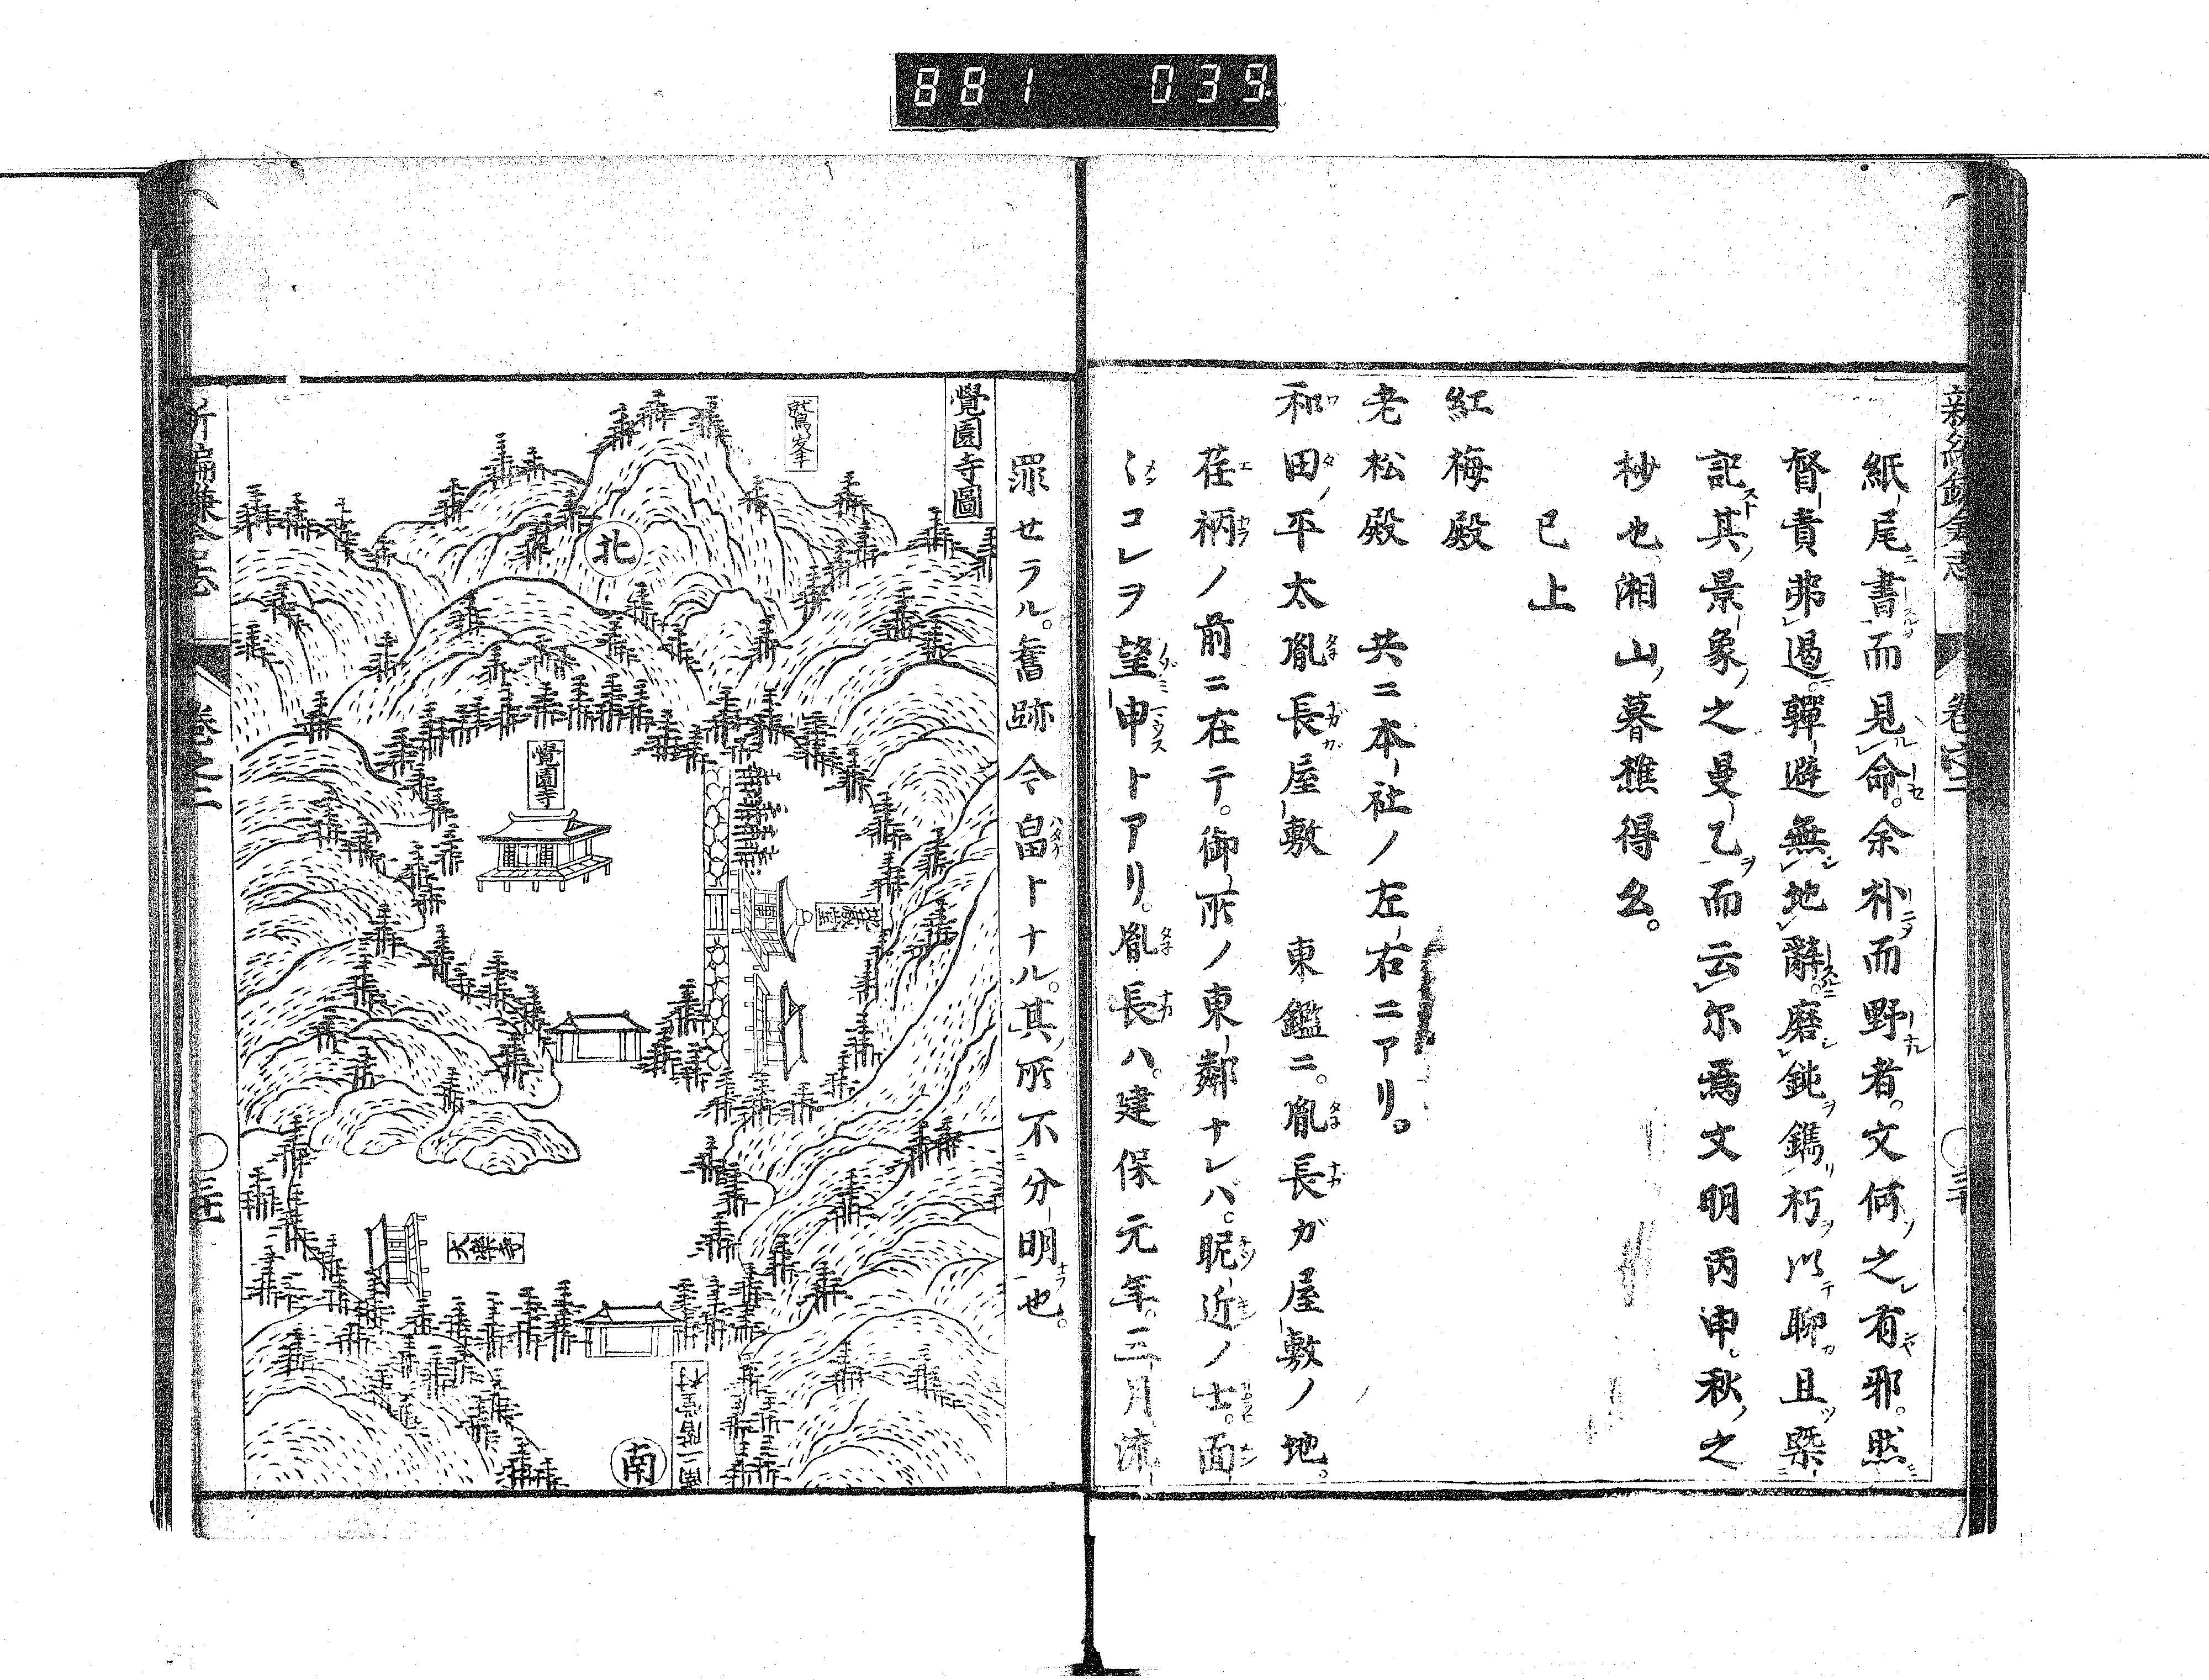 881 039
新編鎌倉志 卷之二
紙尾書而見命。余朴而野者。文何之有邪。然
督責弗遏。辭避無地。磨鈍鐫朽以聊且槩
記其景象之曼乙而云尔爲文明丙申。秋之
杪也。湘山暮樵得么。
已上
紅梅殿
老松殿 共ニ本社ノ左右ニアリ。
和田平太胤長屋敷 東鑑ニ。胤長ガ屋敷ノ地。
荏柄ノ前ニ在テ。御所ノ東鄰ナレバ。昵近ノ士。面
〻コレヲ望申トアリ。胤長ハ。建保元年。三月流
罪セラル。舊跡今畠トナル。其所不分明也。
覺園寺圖
鷲峯
北
覺園寺
地藏堂
大樂寺
南二階堂村
南
新編鎌倉志 卷之二